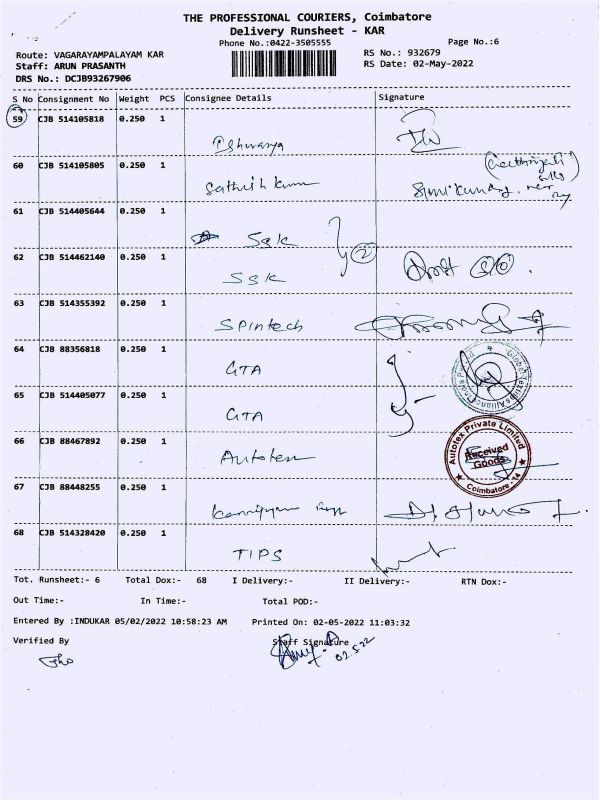 THE PROFESSIONAL COURIERS, Coimbatore
Delivery Runsheet - KAR
Phone No.:0422-3505555
Page No.:6
Route: VAGARAYAMPALAYAM KAR
RS No.: 932679
Staff: ARUN PRASANTH
RS Date: 02-May-2022
DRS No.: DCJB93267906
S No Consignment No Weight PCS Consignee Details Signature
59 CJB 514105818 0.250 1
60 CJB 514105805 0.250 1
Sathish kumar
61 CJB 514405644 0.250 1
SSK
2
62 CJB 514462140 0.250 1
SSK
63 CJB 514355392 0.250 1
SPintech
64 CJB 88356818 0.250 1
GTA
65 CJB 514405077 0.250 1
GTA
66 CJB 88467892 0.250 1
Autotex
Autotex Private Limited
Received
Goods
Coimbatore -14
67 CJB 88448255 0.250 1
68 CJB 514328420 0.250 1
TIPS
Tot. Runsheet:- 6 Total Dox:- 68 I Delivery:- II Delivery:- RTN Dox:-
Out Time:- In Time:- Total POD:-
Entered By :INDUKAR 05/02/2022 10:58:23 AM Printed On: 02-05-2022 11:03:32
Verified By Staff Signature
02.5.22